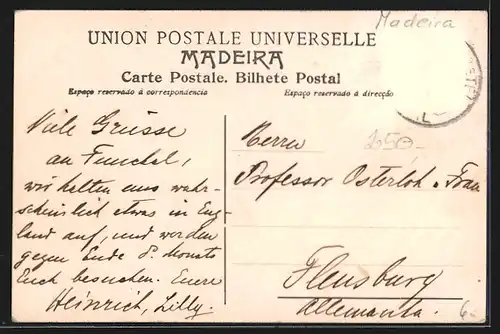 Madeira
UNION POSTALE UNIVERSELLE
MADEIRA
Carte Postale. Bilhete Postal
Espaço reservado á correspondencia
Espaço reservado á direcção
Viele Grüsse
an Funchal,
wir halten uns wahr-
scheinlich etwas in Eng-
land auf, und werden
gegen Ende d. Monats
Euch besuchen. Euere
Heinrich, Lilly.
250-
Herrn
Professor Osterloh u. Frau
Flensburg
Allemanha.